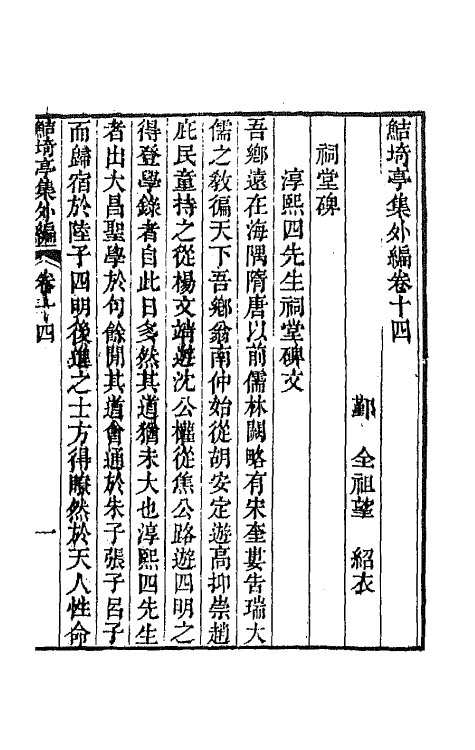 鮚埼亭集外編卷十四
鄞　全祖望　紹衣
祠堂碑
淳熙四先生祠堂碑文
吾鄉遠在海隅隋唐以前儒林闕略有宋奎婁告瑞大
儒之敎徧天下吾鄉翁南仲始從胡安定遊高抑崇趙
庇民童持之從楊文靖遊沈公權從焦公路遊四明之
得登學錄者自此日多然其道猶未大也淳熙四先生
者出大昌聖學於句餘間其道會通於朱子張子呂子
而歸宿於陸子四明後進之士方得瞭然於天人性命
鮚埼亭集外編　卷十四　一